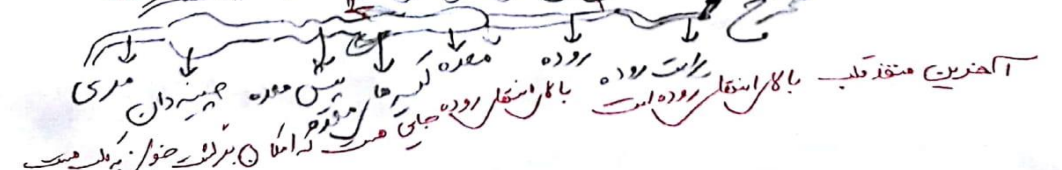 مخرج
مری چینه دان پیش معده کیسه های معده معده روده راست روده
آخرین منفذ قلب بالای انتهای روده است بالای انتهای روده جایی هست که امکان برگشت خون به قلب هست